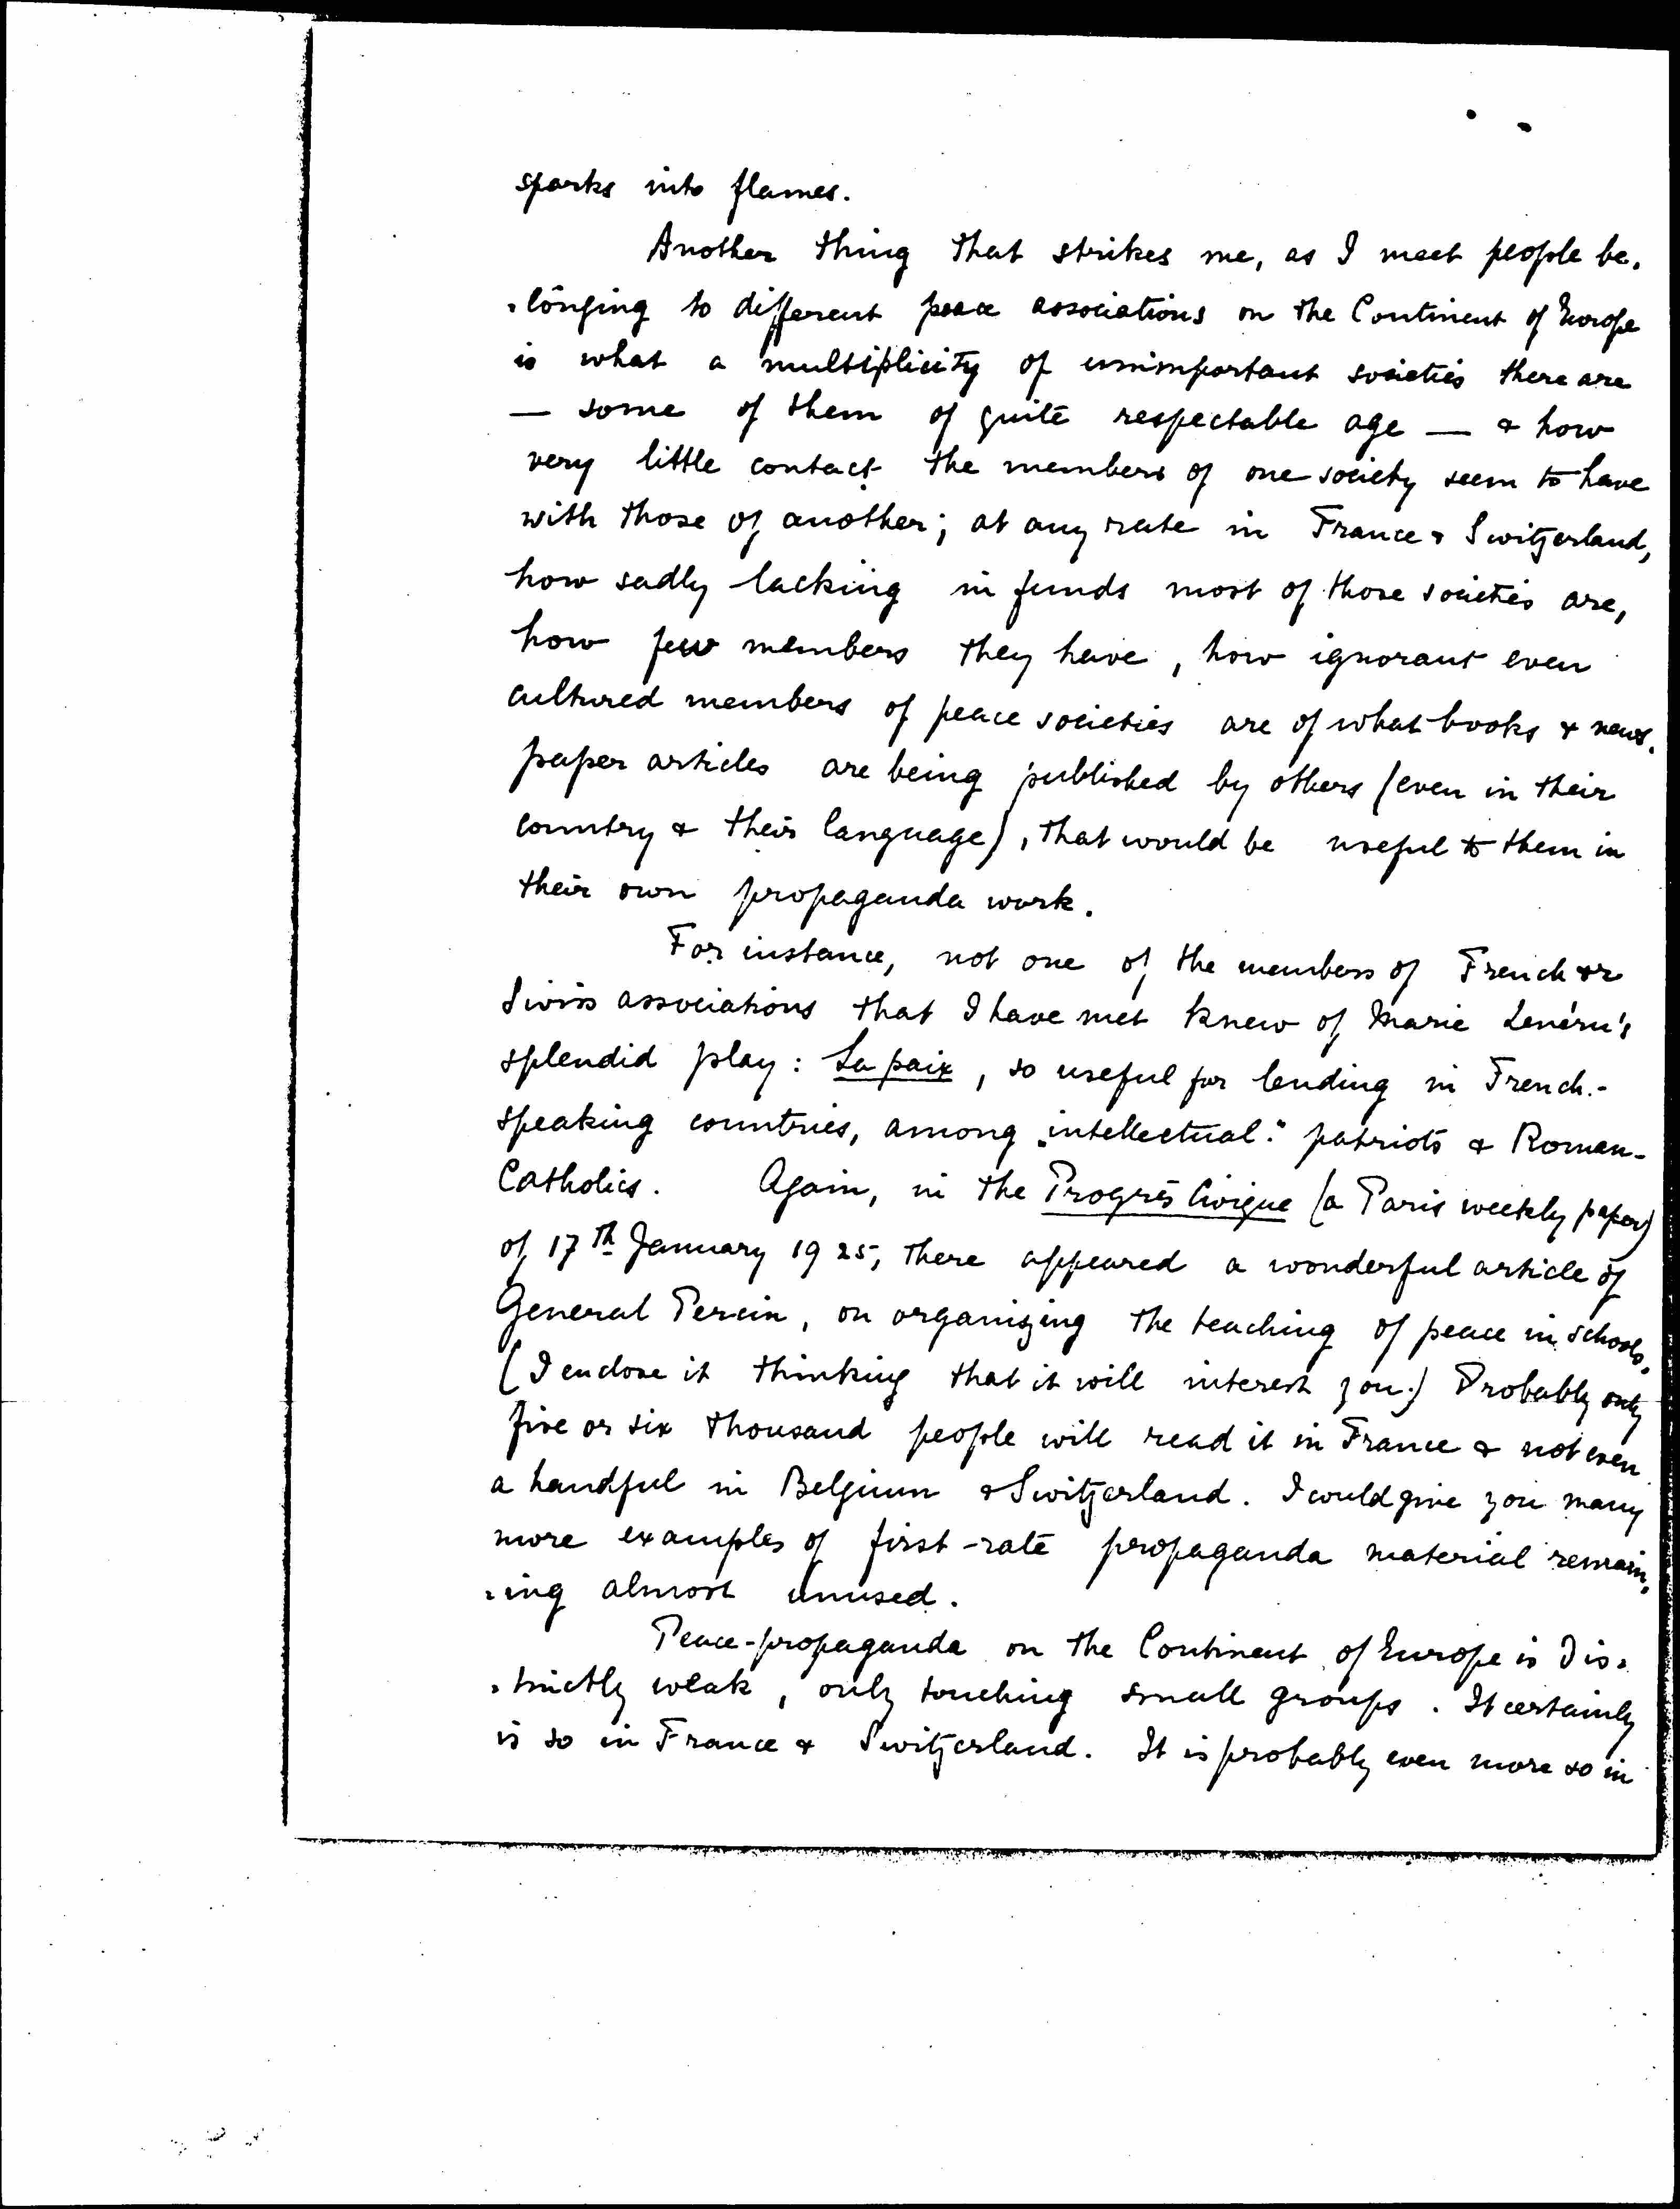 sparks into flames.
Another thing that strikes me, as I meet people be-
-longing to different peace associations on the Continent of Europe
is what a multiplicity of unimportant societies there are
— some of them of quite respectable age — & how
very little contact the members of one society seem to have
with those of another; at any rate in France & Switzerland,
how sadly lacking in funds most of those societies are,
how few members they have, how ignorant even
cultured members of peace societies are of what books & news-
paper articles are being published by others (even in their
country & their language), that would be useful to them in
their own propaganda work.
For instance, not one of the members of French or
Swiss associations that I have met knew of Marie Lenéru's
splendid play: La paix, so useful for lending in French-
speaking countries, among "intellectual" patriots & Roman-
Catholics. Again, in the Progrès Civique (a Paris weekly paper)
of 17th January 1925, there appeared a wonderful article of
General Percin, on organizing the teaching of peace in schools.
(I enclose it thinking that it will interest you.) Probably only
five or six thousand people will read it in France & not even
a handful in Belgium & Switzerland. I could give you many
more examples of first-rate propaganda material remain-
-ing almost unused.
Peace-propaganda on the Continent of Europe is dis-
-tinctly weak, only touching small groups. It certainly
is so in France & Switzerland. It is probably even more so in